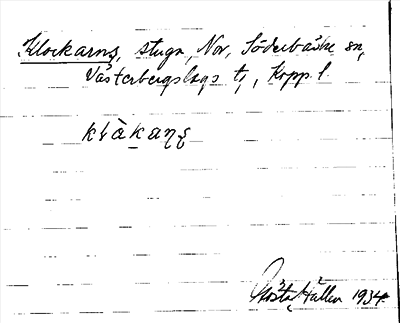 Klockarns, stuga, Nor, Söderbärke sn,
Västerbergslags t., Kopp. l.
Gösta Hallen 1934